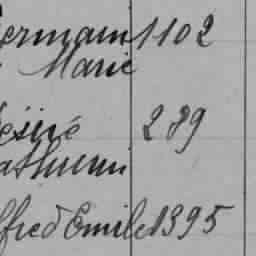 Germain 1102
Marie
Désiré 289
Mathurin
Alfred Emile 1395